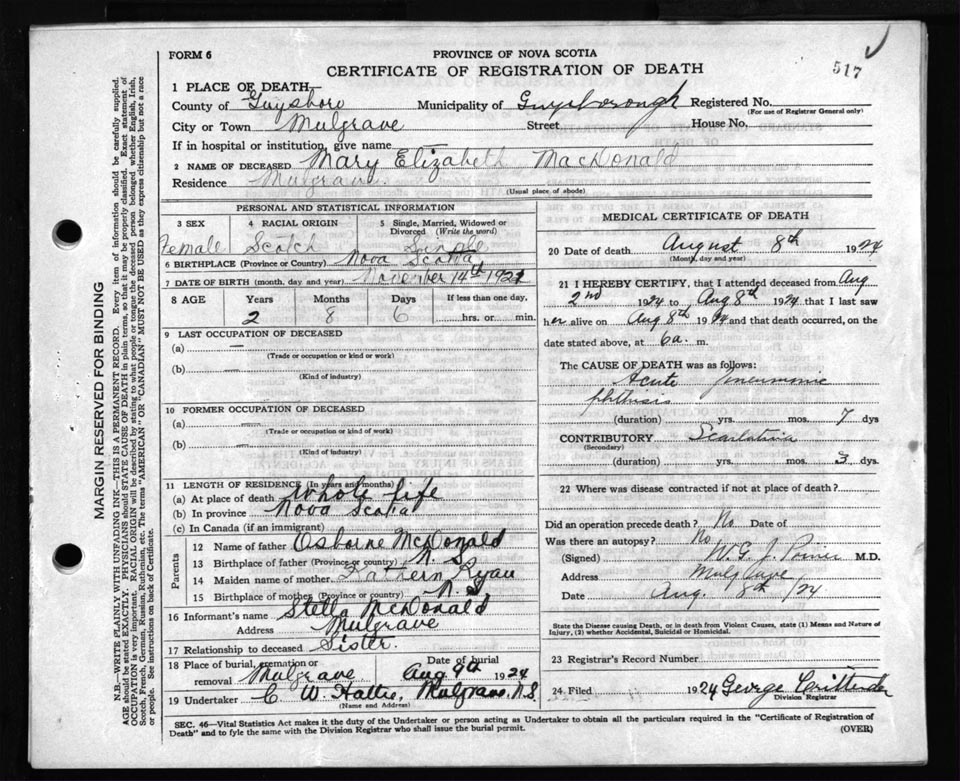 FORM 6
PROVINCE OF NOVA SCOTIA
CERTIFICATE OF REGISTRATION OF DEATH
517
1 PLACE OF DEATH—
County of Guysboro Municipality of Guysborough Registered No.
(For use of Registrar General only)
City or Town Mulgrave Street House No.
If in hospital or institution, give name
2 NAME OF DECEASED Mary Elizabeth MacDonald
Residence Mulgrave.
(Usual place of abode)
PERSONAL AND STATISTICAL INFORMATION
3 SEX 4 RACIAL ORIGIN 5 Single, Married, Widowed or
Divorced (Write the word)
Female Scotch Single
6 BIRTHPLACE (Province or Country) Nova Scotia
7 DATE OF BIRTH (month, day and year) November 14th 1921
8 AGE Years Months Days If less than one day,
2 8 6 hrs. or min.
9 LAST OCCUPATION OF DECEASED
(a) —
(Trade or occupation or kind or work)
(b) —
(Kind of industry)
10 FORMER OCCUPATION OF DECEASED
(a) —
(Trade or occupation or kind or work)
(b) —
(Kind of industry)
11 LENGTH OF RESIDENCE (In years and months)
(a) At place of death Whole life
(b) In province Nova Scotia
(c) In Canada (if an immigrant)
Parents
12 Name of father Osborne McDonald
13 Birthplace of father (Province or country) N. S.
14 Maiden name of mother Ryan
15 Birthplace of mother (Province or country) N. S
16 Informant's name Stella McDonald
Address Mulgrave
17 Relationship to deceased Sister.
18 Place of burial, cremation or Date of burial
removal Mulgrave Aug 9th 1924
19 Undertaker C. W. Hattie, Mulgrave, N.S
(Name and Address)
MEDICAL CERTIFICATE OF DEATH
20 Date of death August 8th 1924
(Month, day and year)
21 I HEREBY CERTIFY, that I attended deceased from Aug
2nd 1924 to Aug 8th 1924 that I last saw
her alive on Aug 8th 1924 and that death occurred, on the
date stated above, at 6a. m.
The CAUSE OF DEATH was as follows:
Acute pneumonic
phthisis
(duration) yrs. mos. 7 dys
CONTRIBUTORY Scarlatina
(Secondary)
(duration) yrs. mos. 3 dys.
22 Where was disease contracted if not at place of death?
Did an operation precede death? No Date of
Was there an autopsy? No
(Signed) W. G. J. M.D.
Address Mulgrave
Date Aug. 8th /24
State the Disease causing Death, or in death from Violent Causes, state (1) Means and Nature of
Injury, (2) whether Accidental, Suicidal or Homicidal.
23 Registrar's Record Number
24 Filed 1924 George Crittenden
Division Registrar
SEC. 46—Vital Statistics Act makes it the duty of the Undertaker or person acting as Undertaker to obtain all the particulars required in the "Certificate of Registration of
Death" and to fyle the same with the Division Registrar who shall issue the burial permit. (OVER)
MARGIN RESERVED FOR BINDING
N.B.—WRITE PLAINLY WITH UNFADING INK—THIS IS A PERMANENT RECORD. Every item of information should be carefully supplied.
AGE should be stated EXACTLY. PHYSICIANS should STATE CAUSE OF DEATH in plain terms, so that it may be properly classified. Exact statement of
OCCUPATION is very important. RACIAL ORIGIN will be described by stating to what people or tongue the deceased person belonged whether English, Irish,
Scotch, French, German, Russian, Ruthenian, etc. The terms "AMERICAN" OR "CANADIAN" MUST NOT BE USED as they express citizenship but not a race
or people. See instructions on back of Certificate.